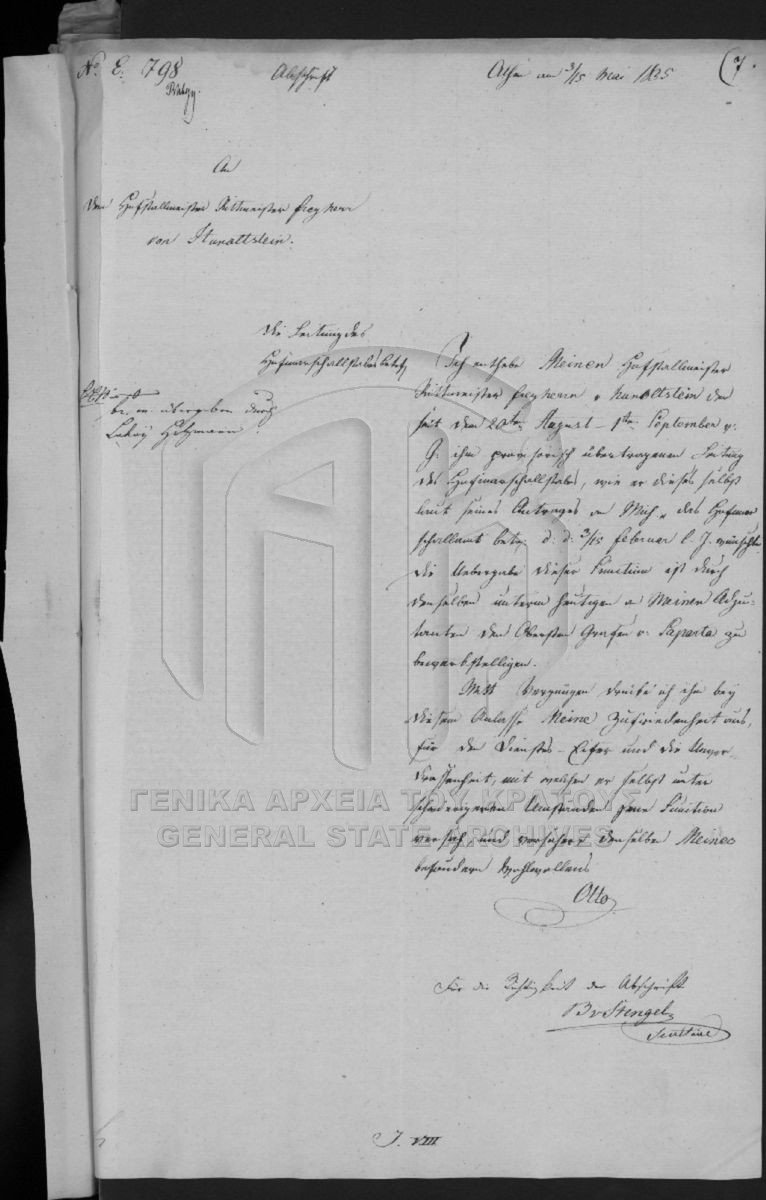 No. E. 798
Abschrift
Athen am 3/15 Mai 1835
7.
An
den Hofstallmeister Rittmeister Freyherr
von Stunottstein.
Die Leitung des
Hofmarschallstabes betrf
übergeben durch
Lakay
Ich enthebe Meinen Hofstallmeister
Rittmeister Freyherrn v Hunoltstein der
seit dem 20ten August - 1ten September v.
J. ihm provisorisch übertragenen Leitung
des Hofmarschallstabes, wie er dieses selbst
laut seines Antrages an Mich, das Hofmar
schallamt betr. d: d: 3/15 Februar l. J. wünschte
Die Uebergabe dieser Function ist durch
denselben unterm Heutigen an Meinen Adju-
tanten den Obersten Grafen v. Saporta zu
bewerkstelligen.
Mit Vergnügen drücke ich ihm bey
diesem Anlasse Meine Zufriedenheit aus,
für den Dienstes-Eifer und die Unver-
drossenheit, mit welcher er selbst unter
schwierigeren Umständen jene Function
versah, und versichere denselben Meines
besondern Wohlwollens
Otto
ΓΕΝΙΚΑ ΑΡΧΕΙΑ ΤΟΥ ΚΡΑΤΟΥΣ
GENERAL STATE ARCHIVES
Für die Richtigkeit der Abschrift
B v Stengel
Secretaire
J. VIII